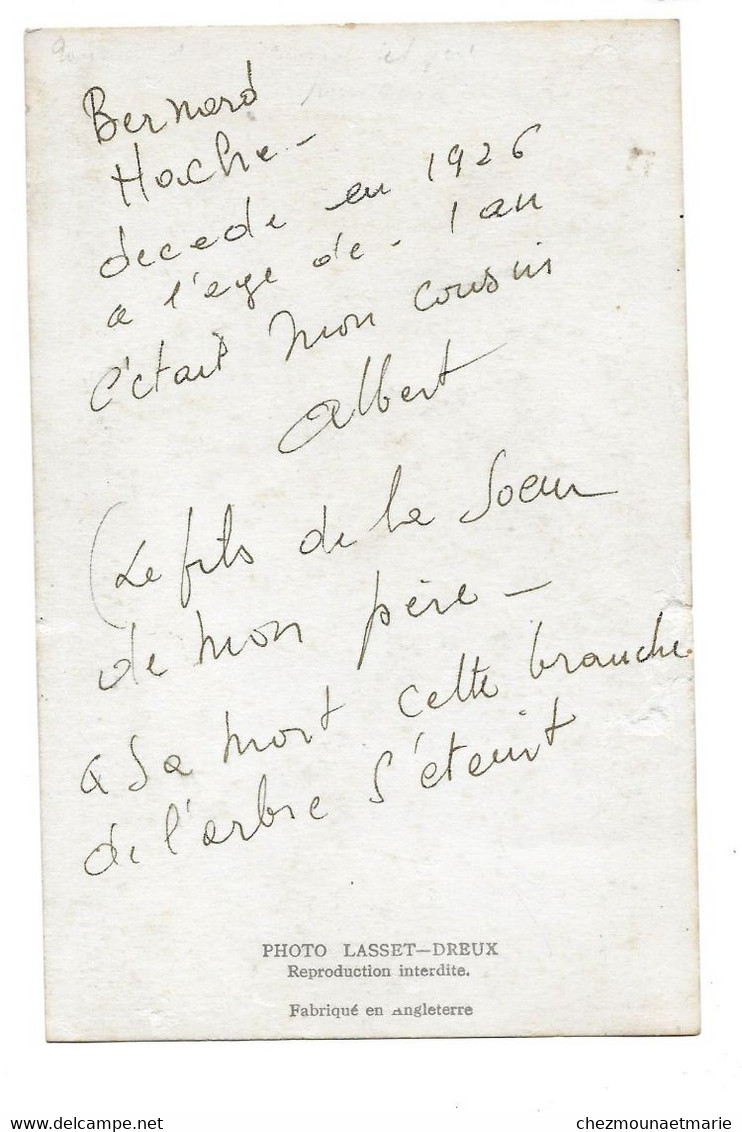 Bernard
Hache -
decede en 1926
a l'age de - 1 an
c'était mon cousin
Albert
(Le fils de la Soeur
de mon père -
a sa mort cette branche
de l'arbre s'éteint
PHOTO LASSET—DREUX
Reproduction interdite.
Fabriqué en Angleterre
chezmounaetmarie